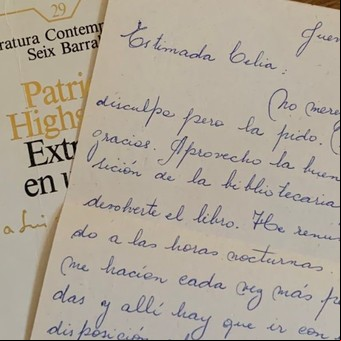 29
ratura Contemp
Seix Barral
Patri
Highs
Extr
en u
a Luis
Juev
Estimada Celia:
(No mere
disculpa pero la pido. (
gracias. Aprovecho la buen
sición de la bibliotecaria
devolverte el libro. He renu
do a las horas nocturnas.
me hacían cada vez más p
das y allí hay que ir con
disposición